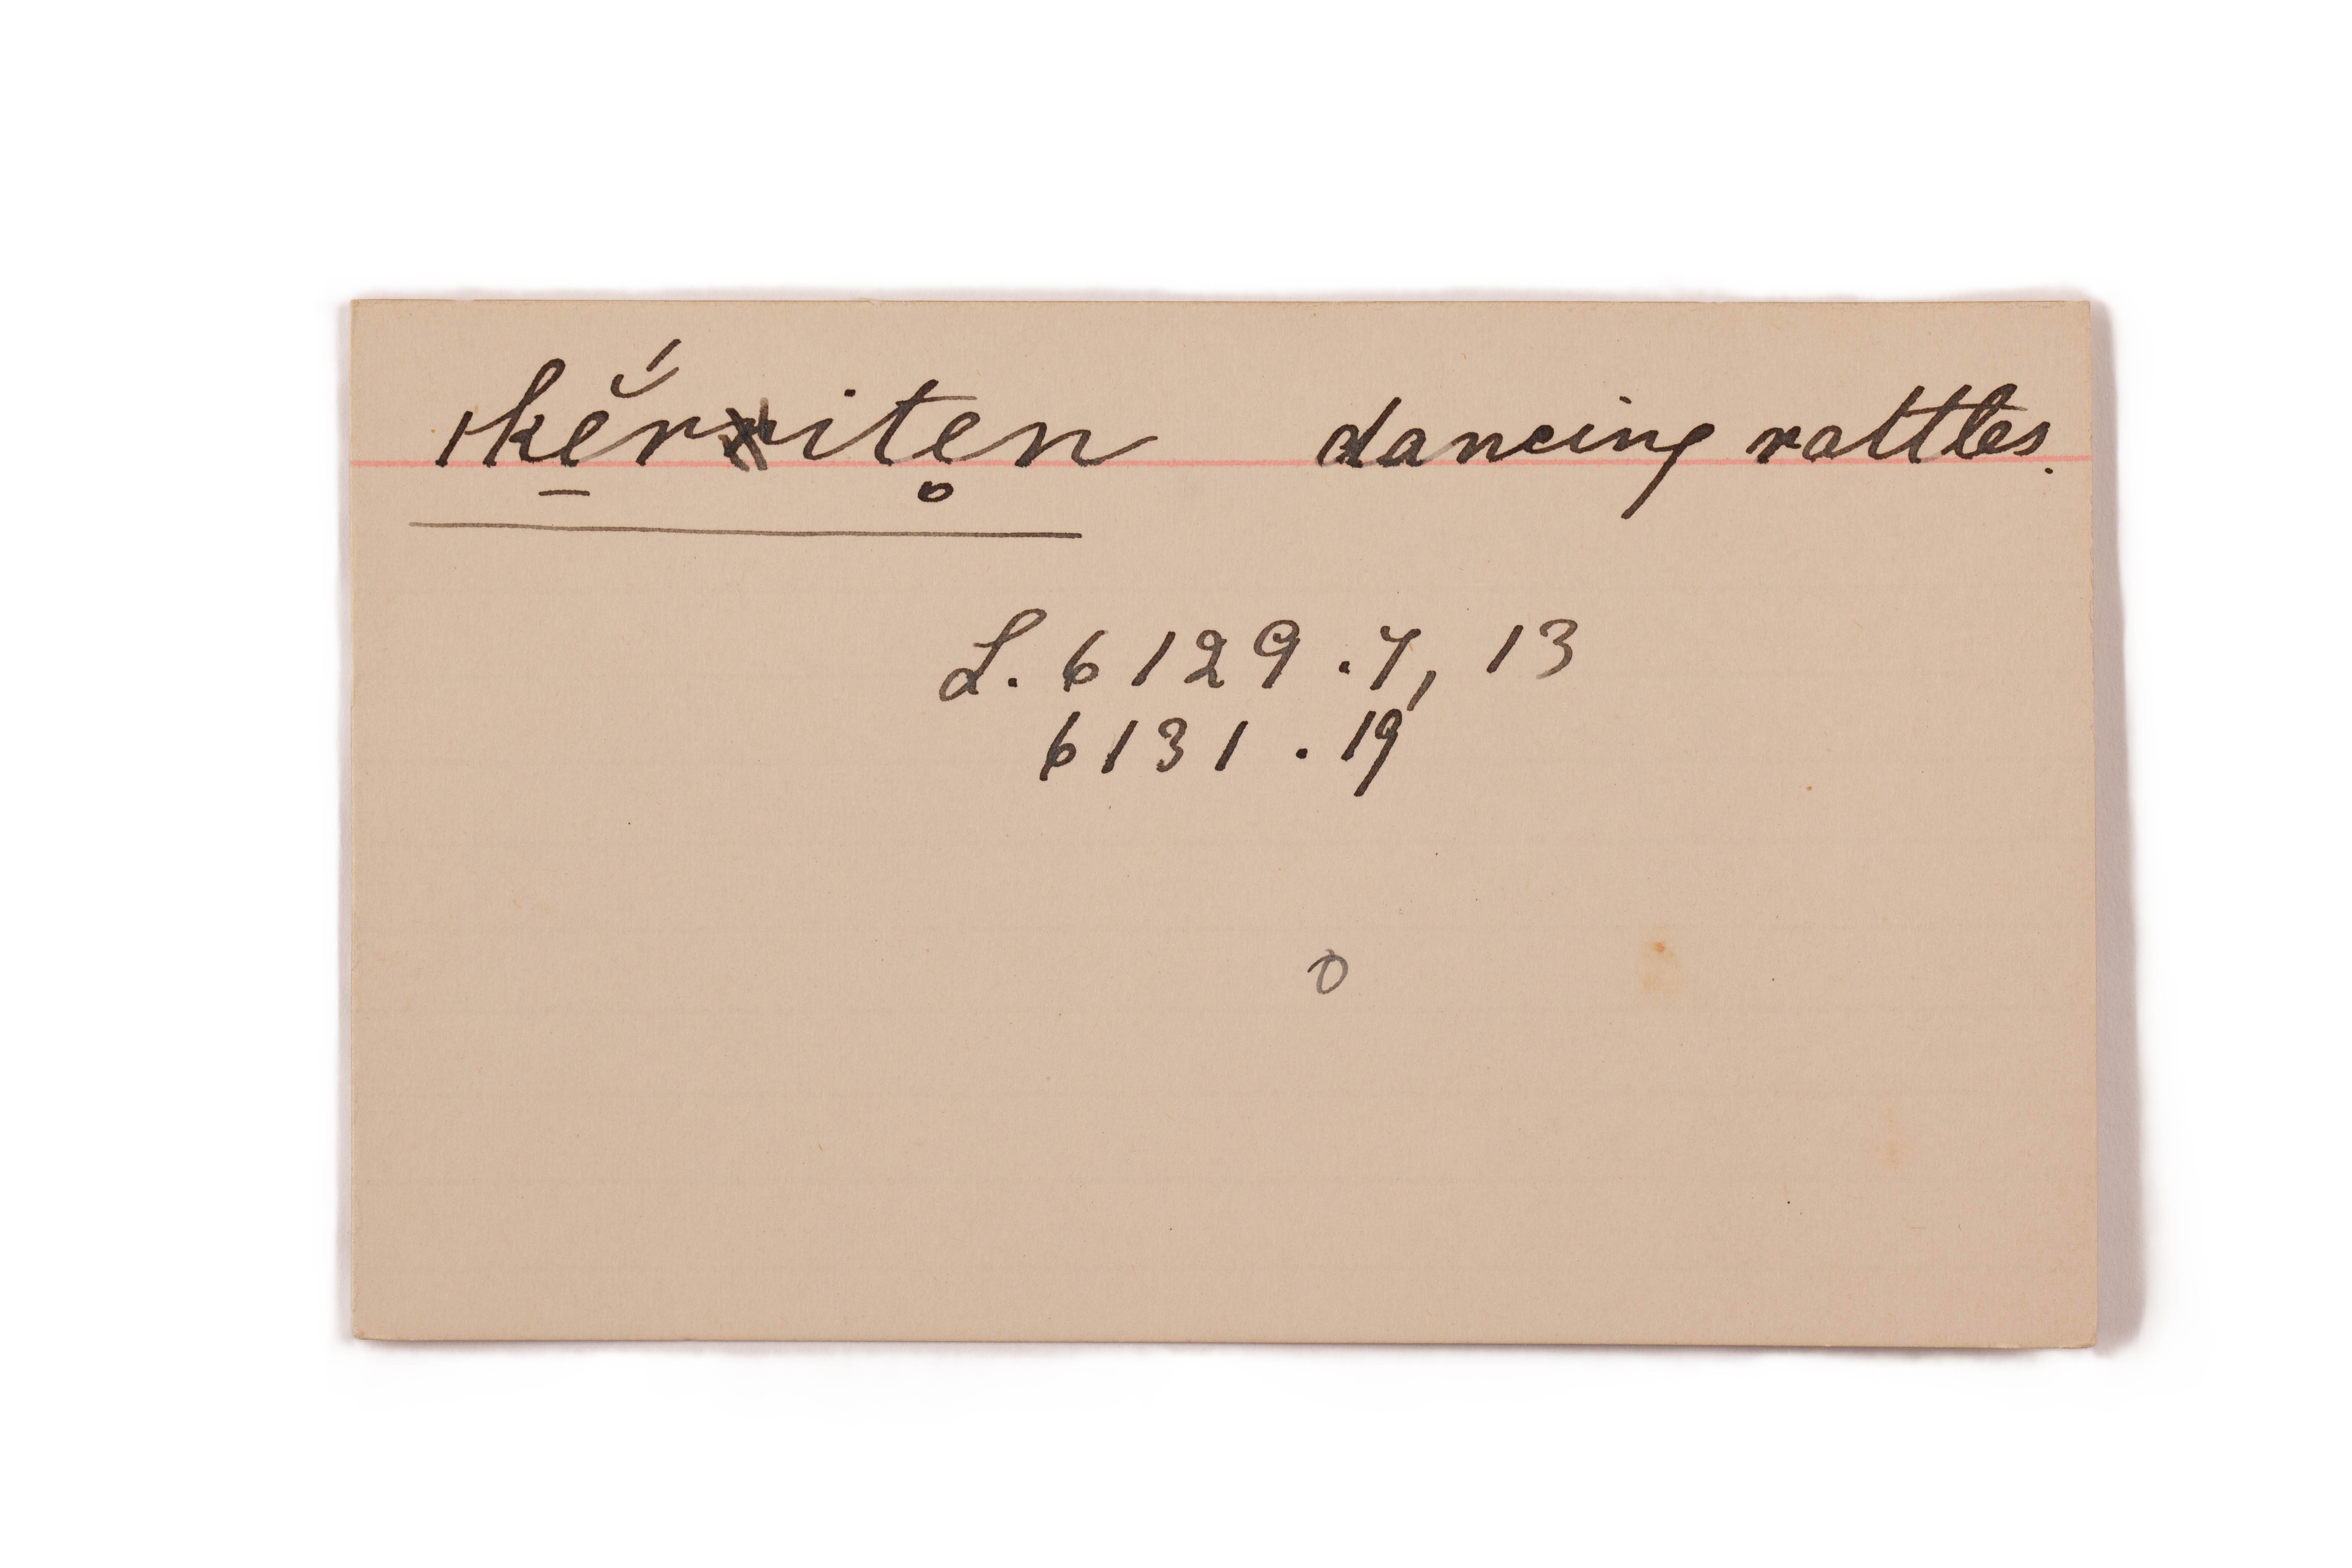 ǀkĕ̱́riten̥ dancing rattles.
L. 6129.7, 13
6131.19
0